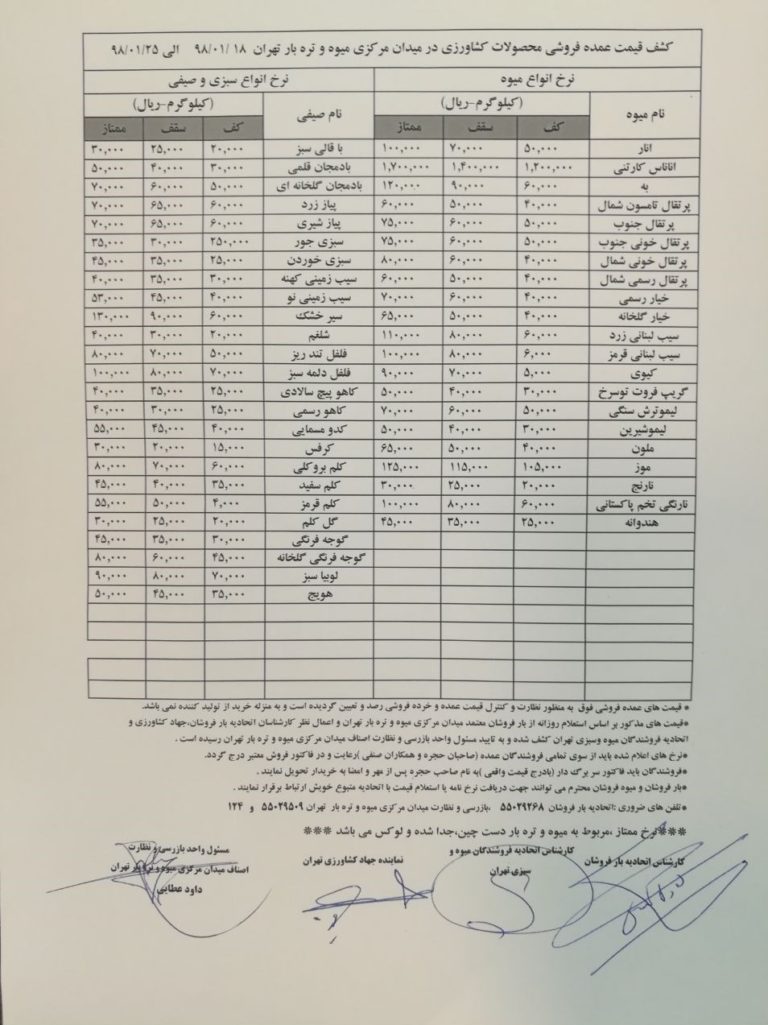 کشف قیمت عمده فروشی محصولات کشاورزی در میدان مرکزی میوه و تره بار تهران ۱۸ /۹۸/۰۱ الی ۹۸/۰۱/۲۵
نرخ انواع میوه نرخ انواع سبزی و صیفی
نام میوه (کیلوگرم-ریال) نام صیفی (کیلوگرم-ریال)
کف سقف ممتاز کف سقف ممتاز
انار ۵۰,۰۰۰ ۷۰,۰۰۰ ۱۰۰,۰۰۰ با قالی سبز ۲۰,۰۰۰ ۲۵,۰۰۰ ۳۰,۰۰۰
اناناس کارتنی ۱,۲۰۰,۰۰۰ ۱,۴۰۰,۰۰۰ ۱,۷۰۰,۰۰۰ بادمجان قلمی ۳۰,۰۰۰ ۴۰,۰۰۰ ۵۰,۰۰۰
به ۶۰,۰۰۰ ۹۰,۰۰۰ ۱۲۰,۰۰۰ بادمجان گلخانه ای ۵۰,۰۰۰ ۶۰,۰۰۰ ۷۰,۰۰۰
پرتقال تامسون شمال ۴۰,۰۰۰ ۵۰,۰۰۰ ۶۰,۰۰۰ پیاز زرد ۶۰,۰۰۰ ۶۵,۰۰۰ ۷۰,۰۰۰
پرتقال جنوب ۵۰,۰۰۰ ۶۰,۰۰۰ ۷۵,۰۰۰ پیاز شیری ۶۰,۰۰۰ ۶۵,۰۰۰ ۷۰,۰۰۰
پرتقال خونی جنوب ۵۰,۰۰۰ ۶۰,۰۰۰ ۷۵,۰۰۰ سبزی جور ۲۵۰,۰۰۰ ۳۰,۰۰۰ ۳۵,۰۰۰
پرتقال خونی شمال ۴۰,۰۰۰ ۶۰,۰۰۰ ۸۰,۰۰۰ سبزی خوردن ۲۵,۰۰۰ ۳۵,۰۰۰ ۴۵,۰۰۰
پرتقال رسمی شمال ۴۰,۰۰۰ ۵۰,۰۰۰ ۶۰,۰۰۰ سیب زمینی کهنه ۳۰,۰۰۰ ۳۵,۰۰۰ ۴۰,۰۰۰
خیار رسمی ۴۰,۰۰۰ ۶۰,۰۰۰ ۷۰,۰۰۰ سیب زمینی نو ۴۰,۰۰۰ ۴۵,۰۰۰ ۵۳,۰۰۰
خیار گلخانه ۴۰,۰۰۰ ۵۰,۰۰۰ ۶۵,۰۰۰ سیر خشک ۶۰,۰۰۰ ۹۰,۰۰۰ ۱۳۰,۰۰۰
سیب لبنانی زرد ۶۰,۰۰۰ ۸۰,۰۰۰ ۱۱۰,۰۰۰ شلغم ۲۰,۰۰۰ ۳۰,۰۰۰ ۴۰,۰۰۰
سیب لبنانی قرمز ۶,۰۰۰ ۸۰,۰۰۰ ۱۰۰,۰۰۰ فلفل تند ریز ۵۰,۰۰۰ ۷۰,۰۰۰ ۸۰,۰۰۰
کیوی ۵,۰۰۰ ۷۰,۰۰۰ ۹۰,۰۰۰ فلفل دلمه سبز ۷۰,۰۰۰ ۸۰,۰۰۰ ۱۰۰,۰۰۰
گریپ فروت توسرخ ۳۰,۰۰۰ ۴۰,۰۰۰ ۵۰,۰۰۰ کاهو پیچ سالادی ۲۵,۰۰۰ ۳۵,۰۰۰ ۴۰,۰۰۰
لیموترش سنگی ۵۰,۰۰۰ ۶۰,۰۰۰ ۷۰,۰۰۰ کاهو رسمی ۲۵,۰۰۰ ۳۰,۰۰۰ ۴۰,۰۰۰
لیموشیرین ۳۰,۰۰۰ ۴۰,۰۰۰ ۵۰,۰۰۰ کدو مسمایی ۴۰,۰۰۰ ۴۵,۰۰۰ ۵۵,۰۰۰
ملون ۴۰,۰۰۰ ۵۰,۰۰۰ ۶۵,۰۰۰ کرفس ۱۵,۰۰۰ ۲۰,۰۰۰ ۳۰,۰۰۰
موز ۱۰۵,۰۰۰ ۱۱۵,۰۰۰ ۱۲۵,۰۰۰ کلم بروکلی ۶۰,۰۰۰ ۷۰,۰۰۰ ۸۰,۰۰۰
نارنج ۲۰,۰۰۰ ۲۵,۰۰۰ ۳۰,۰۰۰ کلم سفید ۳۵,۰۰۰ ۴۰,۰۰۰ ۴۵,۰۰۰
نارنگی تخم پاکستانی ۶۰,۰۰۰ ۸۰,۰۰۰ ۱۰۰,۰۰۰ کلم قرمز ۴,۰۰۰ ۵۰,۰۰۰ ۵۵,۰۰۰
هندوانه ۲۵,۰۰۰ ۳۵,۰۰۰ ۴۵,۰۰۰ گل کلم ۲۰,۰۰۰ ۲۵,۰۰۰ ۳۰,۰۰۰
گوجه فرنگی ۳۰,۰۰۰ ۳۵,۰۰۰ ۴۵,۰۰۰
گوجه فرنگی گلخانه ۴۵,۰۰۰ ۶۰,۰۰۰ ۸۰,۰۰۰
لوبیا سبز ۷۰,۰۰۰ ۸۰,۰۰۰ ۹۰,۰۰۰
هویج ۳۵,۰۰۰ ۴۵,۰۰۰ ۵۰,۰۰۰
* قیمت های عمده فروشی فوق به منظور نظارت و کنترل قیمت عمده و خرده فروشی رصد و تعیین گردیده است و به منزله خرید از تولید کننده نمی باشد.
*قیمت های مذکور بر اساس استعلام روزانه از بار فروشان معتمد میدان مرکزی میوه و تره بار تهران و اعمال نظر کارشناسان اتحادیه بار فروشان،جهاد کشاورزی و
اتحادیه فروشندگان میوه وسبزی تهران کشف شده و به تایید مسئول واحد بازرسی و نظارت اصناف میدان مرکزی میوه و تره بار تهران رسیده است .
*نرخ های اعلام شده باید از سوی تمامی فروشندگان عمده (صاحبان حجره و همکاران صنفی )رعایت و در فاکتور فروش معتبر درج گردد.
*فروشندگان باید فاکتور سر برگ دار (بادرج قیمت واقعی )به نام صاحب حجره پس از مهر و امضا به خریدار تحویل نمایند .
*بار فروشان و میوه فروشان محترم می توانند جهت دریافت نرخ نامه یا استعلام قیمت با اتحادیه متبوع خویش ارتباط برقرار نمایند .
*تلفن های ضروری :اتحادیه بار فروشان ۵۵۰۲۹۲۶۸ ،بازرسی و نظارت میدان مرکزی میوه و تره بار تهران ۵۵۰۲۹۵۰۹ و ۱۲۴
***نرخ ممتاز ،مربوط به میوه و تره بار دست چین،جدا شده و لوکس می باشد ***
کارشناس اتحادیه بار فروشان
کارشناس اتحادیه فروشندگان میوه و
سبزی تهران
نماینده جهاد کشاورزی تهران
مسئول واحد بازرسی و نظارت
اصناف میدان مرکزی میوه و تره بار تهران
داود عطایی